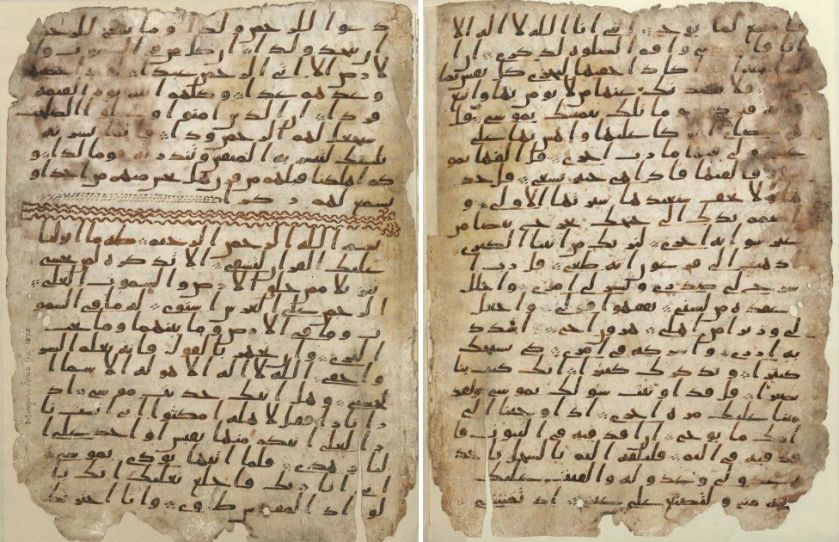 دعوا للرحمن ولدا وما ينبغي للرحمن
ان يتخذ ولدا ان كل من في السموت و
الارض الا اتي الرحمن عبدا لقد احصيهم
وعدهم عدا وكلهم اتيه يوم القيمة
فردا ان الذين امنوا وعملوا الصلحت
سيجعل لهم الرحمن ودا فانما يسرنه
بلسنك لتبشر به المتقين وتنذر به قوما لدا و
كم اهلكنا قبلهم من قرن هل تحس منهم من احد او
تسمع لهم ركزا
بسم الله الرحمن الرحيم طه ما انزلنا
عليك القران لتشقى الا تذكرة لمن يخشى
تنزيلا ممن خلق الارض والسموت العلى
الرحمن على العرش استوى له ما في السمو
ت وما في الارض وما بينهما وما تحت
الثرى وان تجهر بالقول فانه يعلم السر
واخفى الله لا اله الا هو له الاسما ا
لحسنى وهل اتيك حديث موسى اذ
را نارا فقل لاهله امكثوا اني انست نا
را لعلي اتيكم منها بقبس او اجد على ا
لنار هدى فلما اتيها نودي يموسى
اني انا ربك فاخلع نعليك انك با
لواد المقدس طوى وانا اخترتك
فاستمع لما يوحى انني انا الله لا اله الا
انا فاعبدني واقم الصلوة لذكري ان ا
لساعة اتية اكاد اخفيها لتجزى كل نفس بما
تسعى فلا يصدنك عنها من لا يومن بها واتبع
هويه فتردى وما تلك بيمينك يموسى قل
هي عصاي اتوكا عليها واهش بها على
غنمي ولي فيها مارب اخرى قل القها يمو
سى فالقيها فاذا هي حية تسعى قل خذ
ها ولا تخف سنعيدها سيرتها الاولى و
اضمم يدك الى جنحك تخرج بيضا من
غير سو اية اخرى لنريك من ايتنا الكبرى
اذهب الى فرعون انه طغى قل رب ا
شرح لي صدري ويسر لي امري واحلل
عقدة من لسني يفقهوا قولي واجعل
لي وزيرا من اهلي هرون اخي اشدد
به ازري واشركه في امري كي نسبحك
كثيرا ونذكرك كثيرا انك كنت بنا
بصيرا قل قد اوتيت سولك يموسى ولقد
مننا عليك مرة اخرى اذ اوحينا الى
امك ما يوحى ان اقذفيه في التابوت فا
قذفيه في اليم فليلقه اليم بالساحل ياخذه
عدو لي وعدو له والقيت عليك
محبة مني ولتصنع على عيني اذ تمشي